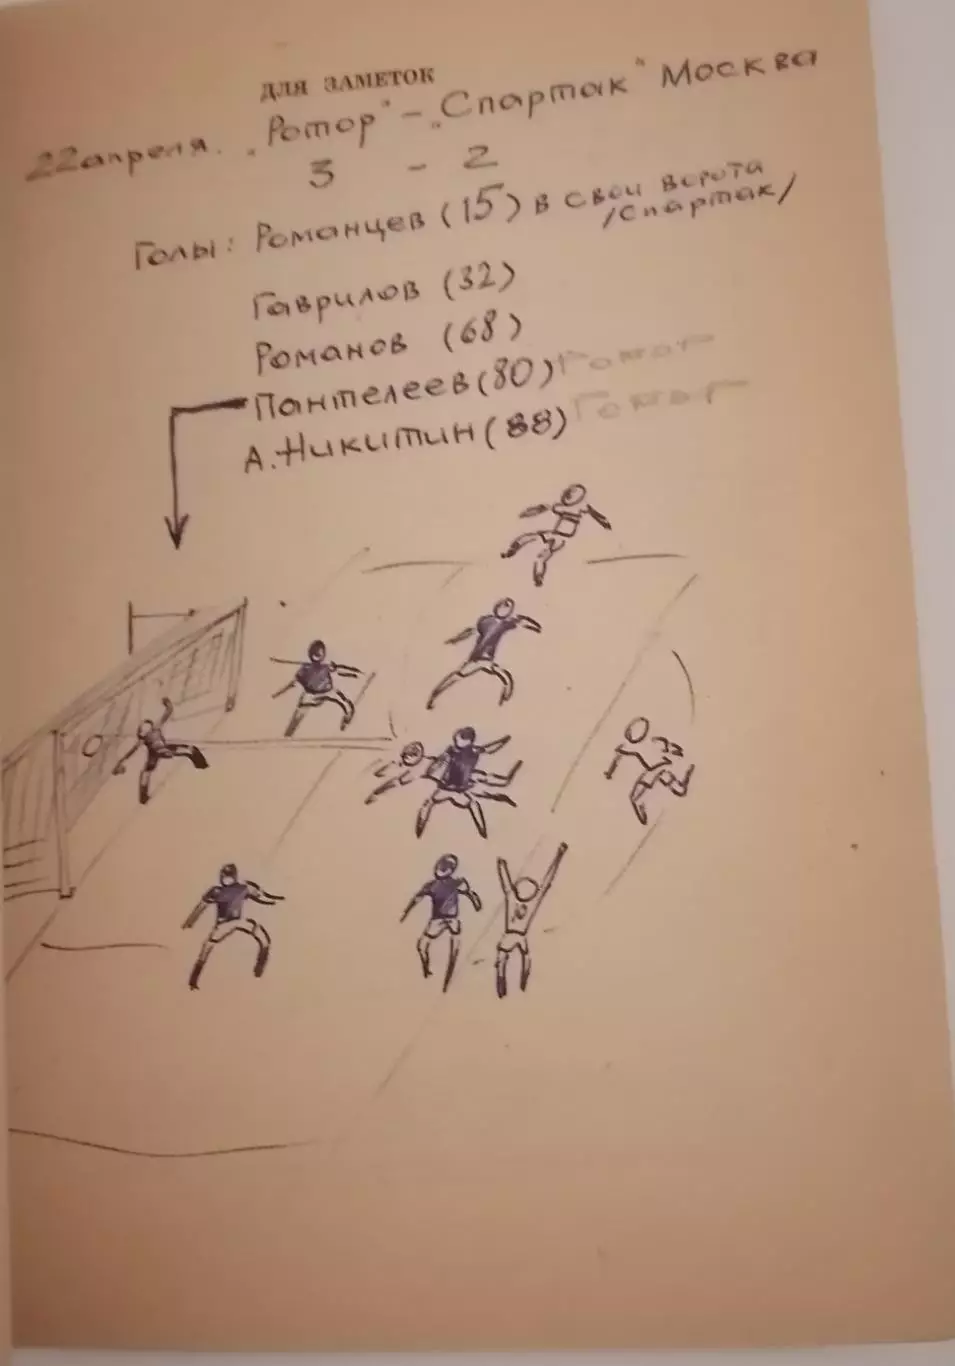 ДЛЯ ЗАМЕТОК
22 апреля. „Ротор" – „Спартак" Москва
3 - 2
Голы: Романцев (15) в свои ворота
/Спартак/
Гаврилов (32)
Романов (68)
Пантелеев (80)
А. Никитин (88)